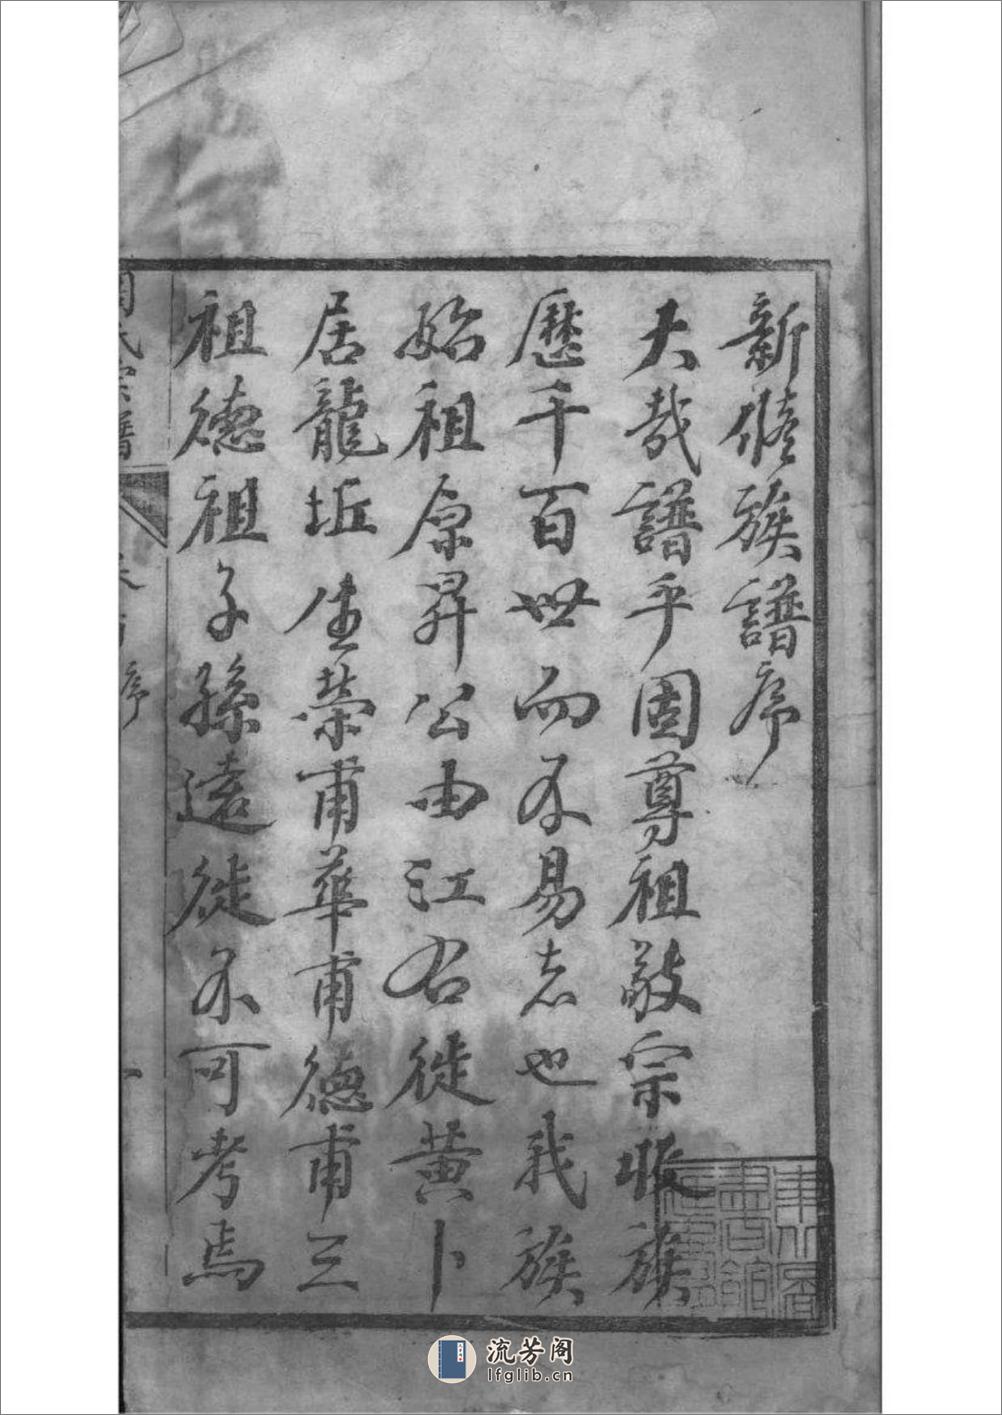 新脩族譜序
大哉譜乎固尊祖敬宗收族
歷千百世而不易者也我族
始祖原昇公由江右徙黃卜
居龍坵生榮甫華甫德甫三
祖德祖子孫遠徙不可考焉
氏宗譜
卷首
序
一
流芳阁
lfglib.cn